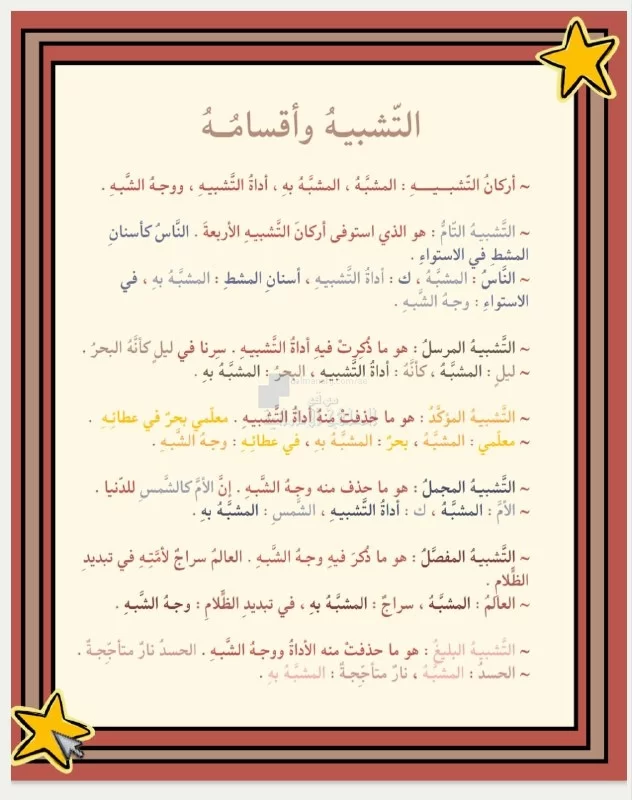 التّشبيـهُ وأقسامُـهُ
~ أركانُ التّشبـيـــهِ : المشبَّهُ ، المشبَّهُ بهِ ، أداةُ التَّشبيهِ ، ووجهُ الشَّبهِ .
~ التَّشبيهُ التّامُّ : هو الذي استوفى أركانَ التَّشبيهِ الأربعةَ . النَّاسُ كأسنانِ
المشطِ في الاستواءِ .
~ النَّاسُ : المشبَّهُ ، ك : أداةُ التَّشبيهِ ، أسنانِ المشطِ : المشبَّهُ بهِ ، في
الاستواءِ : وجهُ الشَّبهِ .
~ التَّشبيهُ المرسلُ : هو ما ذُكِرتْ فيهِ أداةُ التَّشبيهِ . سِرنا في ليلٍ كأنَّهُ البحرُ .
~ ليلٍ : المشبَّهُ ، كأنَّهُ : أداةُ التَّشبيهِ ، البحرُ : المشبَّهُ بهِ .
almanahj.com/ae
موقع
المناهج الإماراتية
~ التَّشبيهُ المؤكَّدُ : هو ما حذفتْ منهُ أداةُ التَّشبيهِ . معلّمي بحرٌ في عطائِهِ .
~ معلّمي : المشبَّهُ ، بحرٌ : المشبَّهُ بهِ ، في عطائِهِ : وجهُ الشَّبهِ .
~ التَّشبيهُ المجملُ : هو ما حذف منه وجهُ الشَّبهِ . إنَّ الأمَّ كالشَّمسِ للدّنيا .
~ الأمَّ : المشبَّهُ ، ك : أداةُ التَّشبيهِ ، الشَّمسِ : المشبَّهُ بهِ .
~ التَّشبيهُ المفصَّلُ : هو ما ذُكرَ فيهِ وجهُ الشَّبهِ . العالمُ سراجٌ لأمَّتِهِ في تبديدِ
الظَّلامِ .
~ العالمُ : المشبَّهُ ، سراجٌ : المشبَّهُ بهِ ، في تبديدِ الظَّلامِ : وجهُ الشَّبهِ .
~ التَّشبيهُ البليغُ : هو ما حذفتْ منه الأداةُ ووجهُ الشَّبهِ . الحسدُ نارٌ متأجّجةٌ .
~ الحسدُ : المشبَّهُ ، نارٌ متأجّجةٌ : المشبَّهُ بهِ .